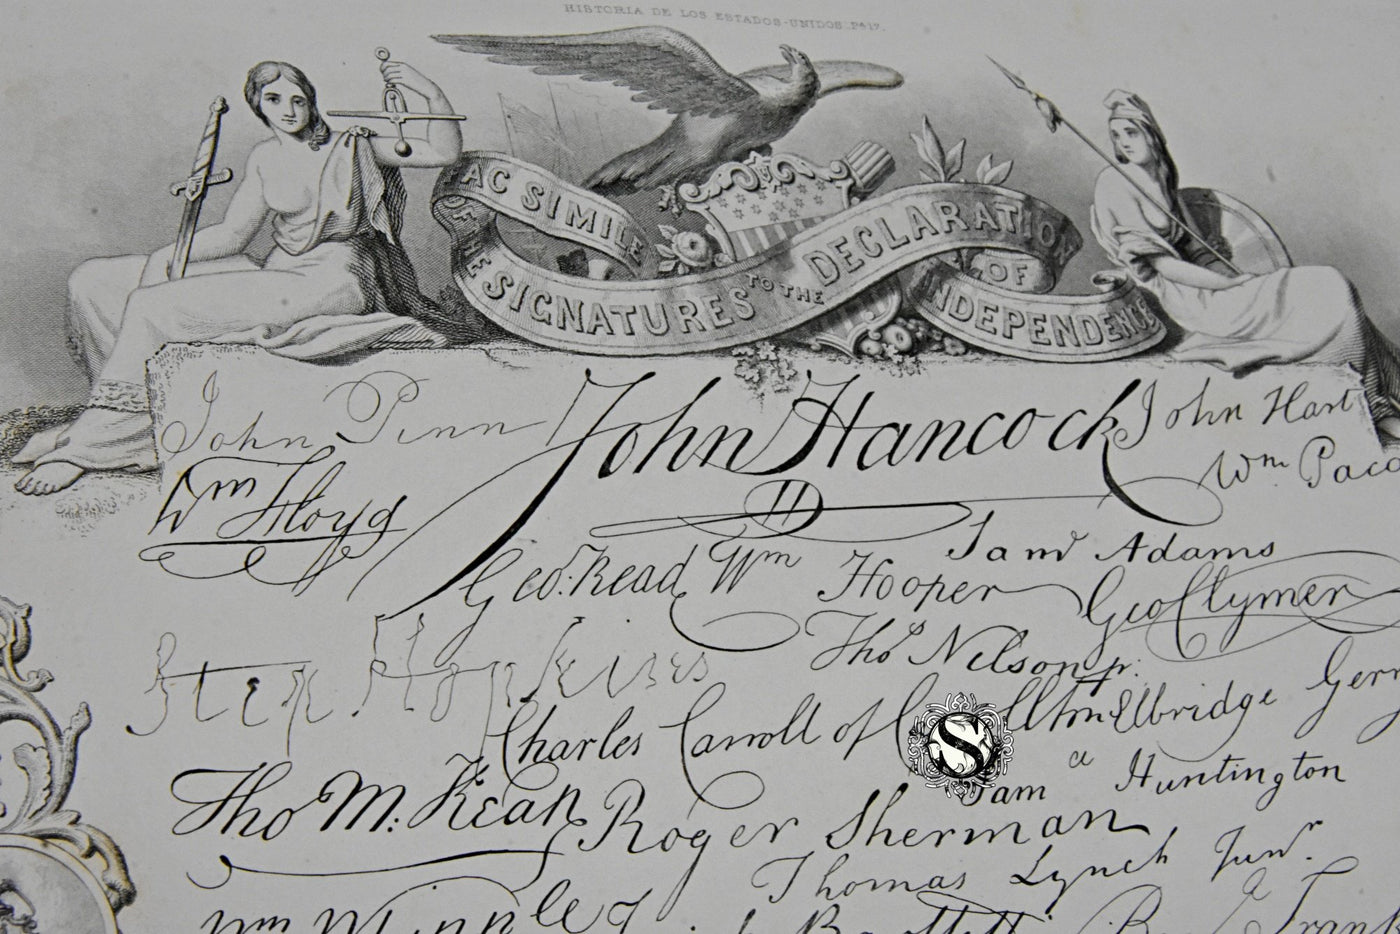 HISTORIA DE LOS ESTADOS-UNIDOS. P417.
FAC SIMILE
OF THE
SIGNATURES TO THE DECLARATION
OF
INDEPENDENCE
John Penn John Hancock John Hart
Wm Floyd Wm Paca
Saml Adams
Geo. Read Wm Hooper Geo Clymer
Step Hopkins Thos Nelson jr.
Charles Carroll of Elbridge Gerry
S
Tho M: Kean Roger Sherman Sam Huntington
Thomas Lynch Junr.
Wm Whipple Bartlett